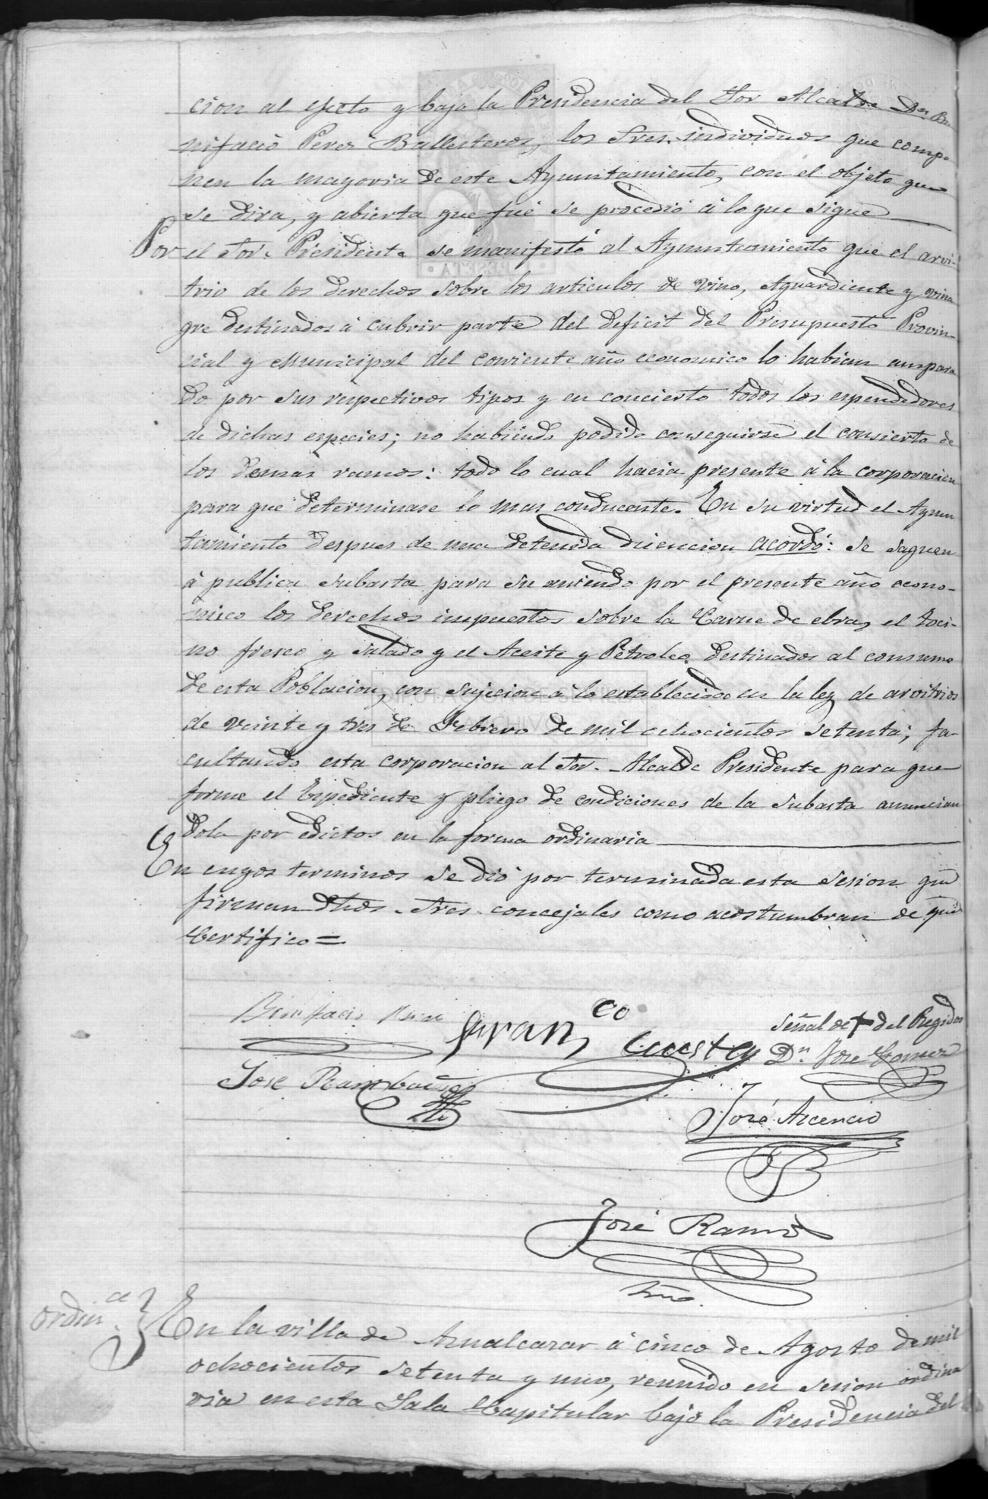 cion al efecto y bajo la Presidencia del Sor Alcalde Dn Bo-
nifacio Perez Ballesteros, los Sres. individuos que compo-
nen la mayoria de este Ayuntamiento, con el objeto que
se dira, y abierta que fué se procedió á lo que sigue
Por el Sor. Presidente se manifestó al Ayuntamiento que el arvi-
trio de los derechos sobre los articulos de vino, Aguardiente y vina
gre destinados á cubrir parte del deficit del Presupuesto Provin-
cial y Municipal del corriente año economico lo habian ampara
do por sus respectivos tipos y en concierto todos los espendedores
de dichas especies; no habiendo podido conseguirse el consierto de
los demas ramos: todo lo cual hacia presente á la corporacion
para que determinase lo mas conducente. En su virtud el Ayun
tamiento despues de una detenida discucion acordó: se saquen
á publica subasta para su arriendo por el presente año econo-
mico los derechos impuestos sobre la Carne de ebra, el toci-
no fresco y salado y el Aceite y Petroleo destinados al consumo
de esta Poblacion, con sujecion á lo establecido en la ley de arvitrios
de veinte y tres de Febrero de mil ochocientos setenta; fa-
cultando esta corporacion al Sor. Alcalde Presidente para que
forme el Expediente y pliego de condiciones de la subasta anuncian
dola por edictos en la forma ordinaria
En cuyos terminos se dió por terminada esta sesion que
firman dhos. Sres. concejales como acostumbran de que
Certifico=
Bonifacio Perez
Franco Cuesta
Señal de + del Regidor
Dn. Jose Gomez
Jose
José Ascencio
José Ramos
Srio.
Ordina. En la villa de Aznalcazar á cinco de Agosto de mil
ochocientos setenta y uno, reunido en sesion ordina
ria en esta Sala Capitular bajo la Presidencia del